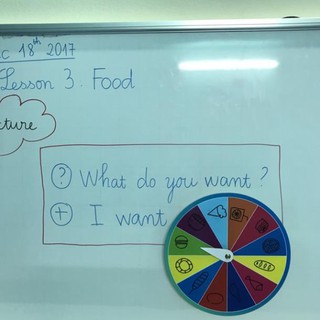 c 18th 2017
Lesson 3. Food
cture
? What do you want ?
+ I want